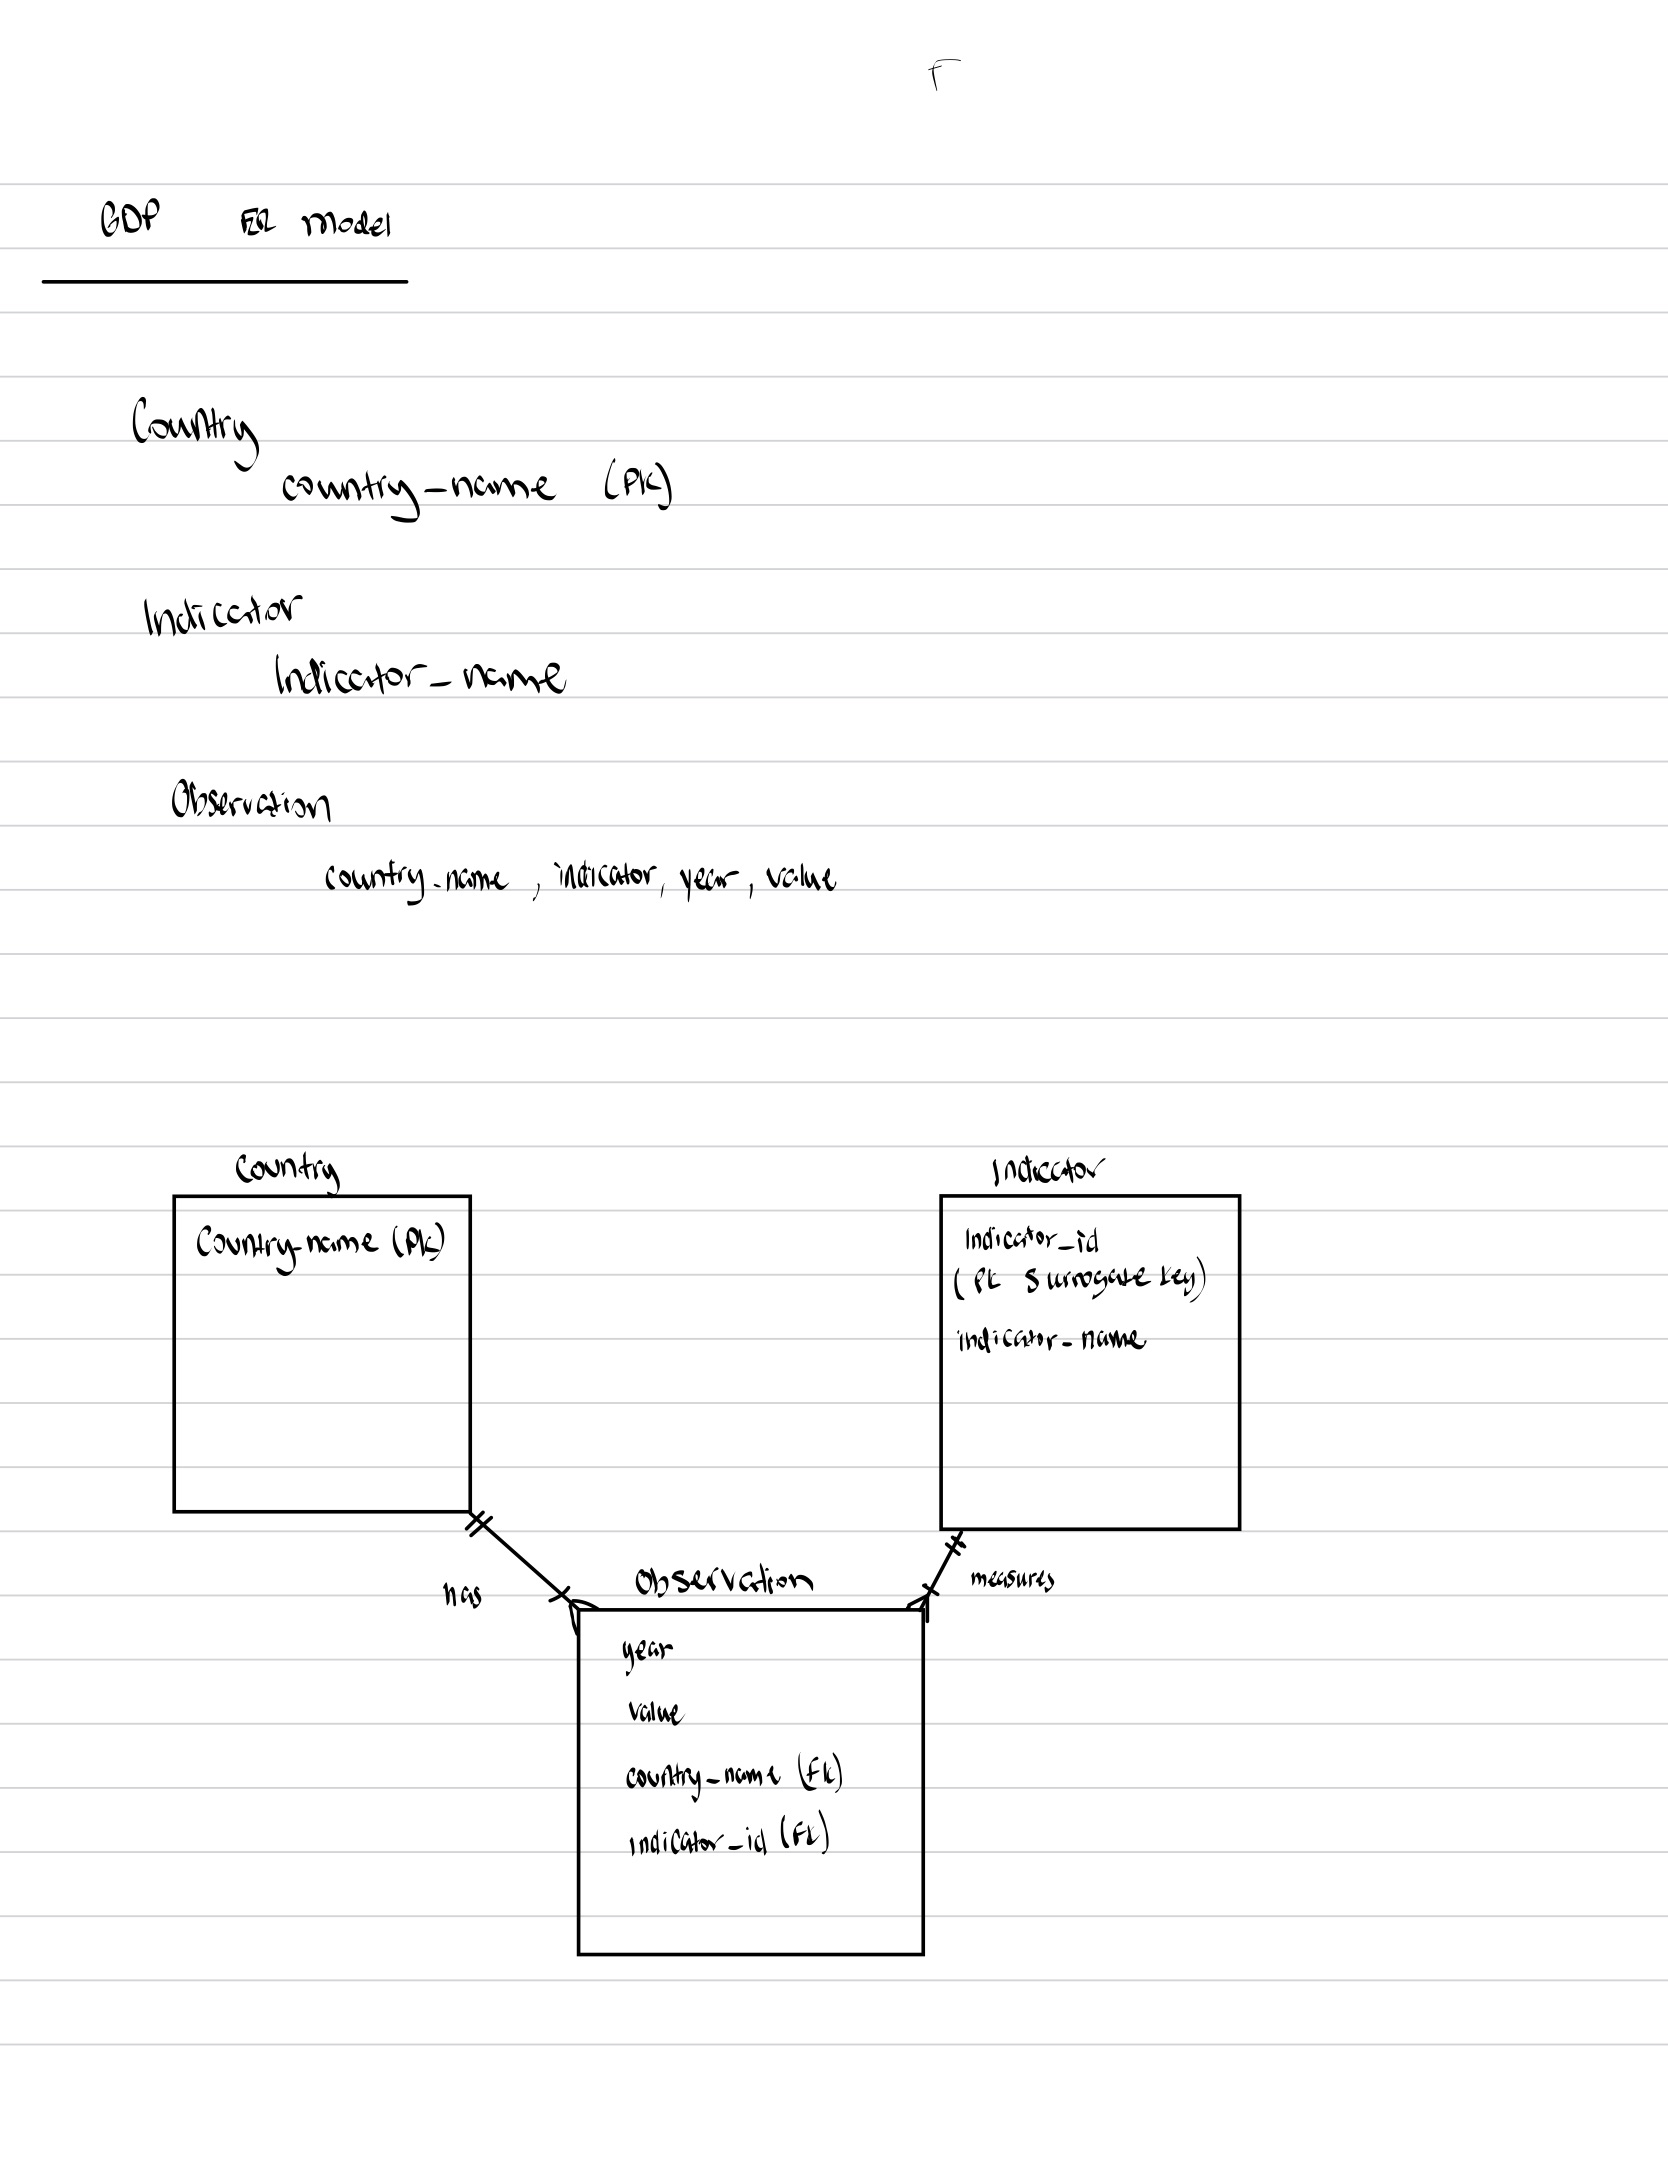 GDP ER model
Country
country_name (PK)
Indicator
Indicator_name
Observation
country_name, indicator, year, value
Country
Country_name (PK)
Indicator
Indicator_id
(PK surrogate key)
indicator_name
has
Observation
measures
year
value
country_name (FK)
indicator_id (FK)